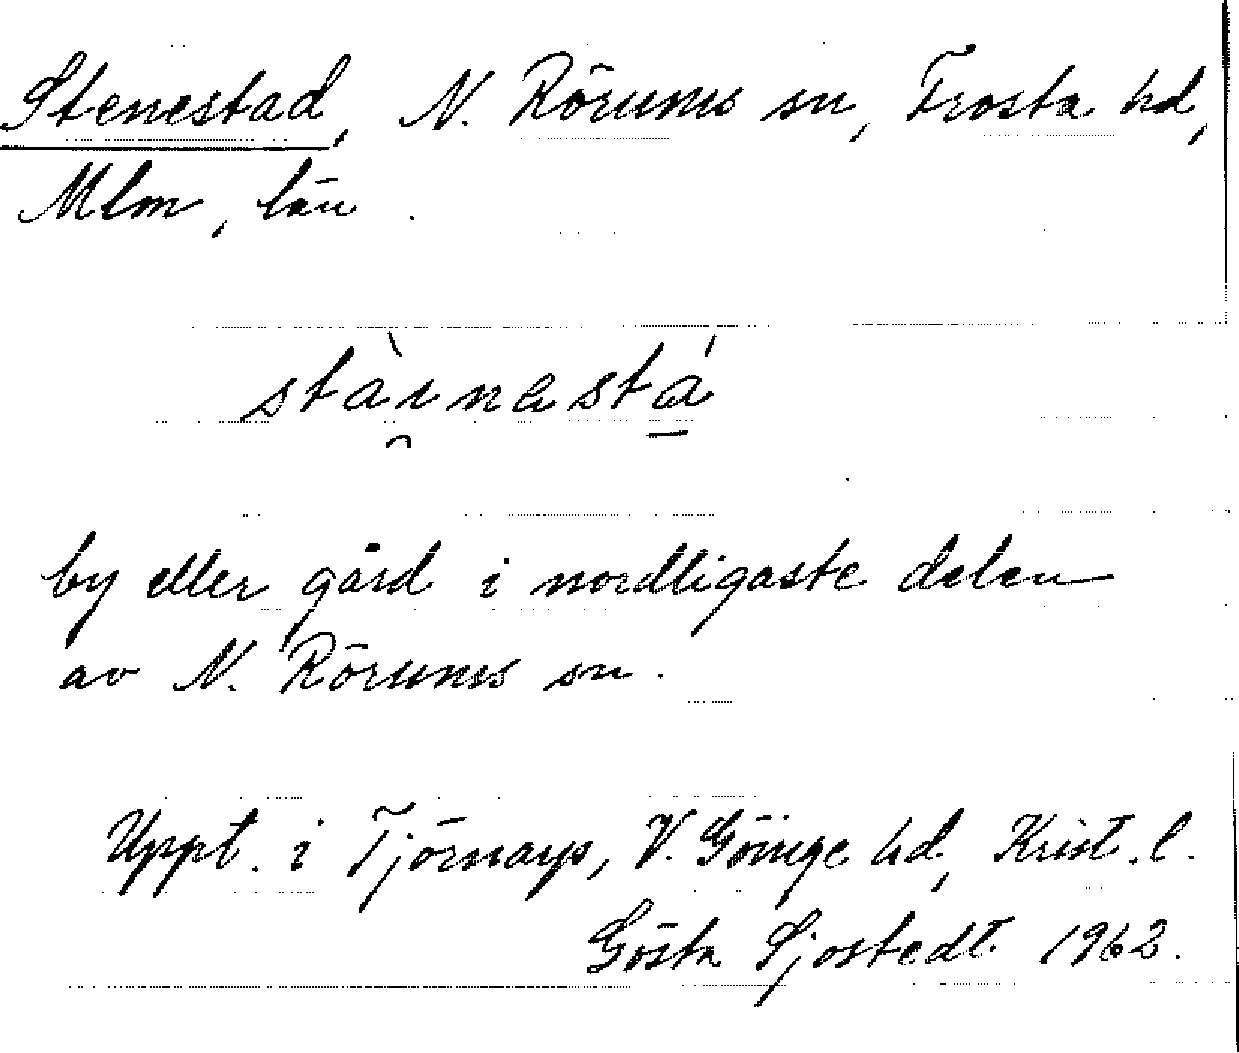 Stenestad, N. Rörums sn, Frosta hd,
Mlm, län.
stàinastá
by eller gård i nordligaste delen
av N. Rörums sn.
Uppt. i Tjörnarps, V. Göinge hd, Krist. l.
Gösta Sjöstedt. 1962.